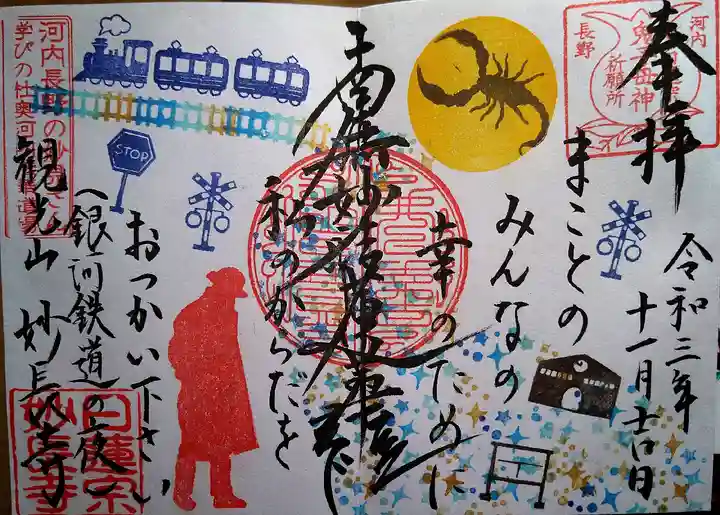 奉拝
令和三年
十一月吉日
河内
長野
鬼子母神
祈願所
まことの
みんなの
幸のために
南無妙法蓮華経
私のからだを
おつかい下さい
(銀河鉄道の夜)
観光山 妙長寿寺
河内長野の
学びの杜奥河
STOP
日蓮宗